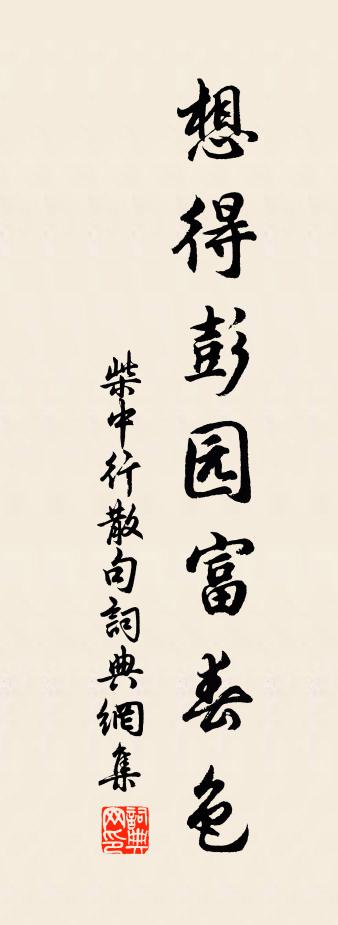 想得彭园富春色
柴中行散句詞典網集
詞典网印